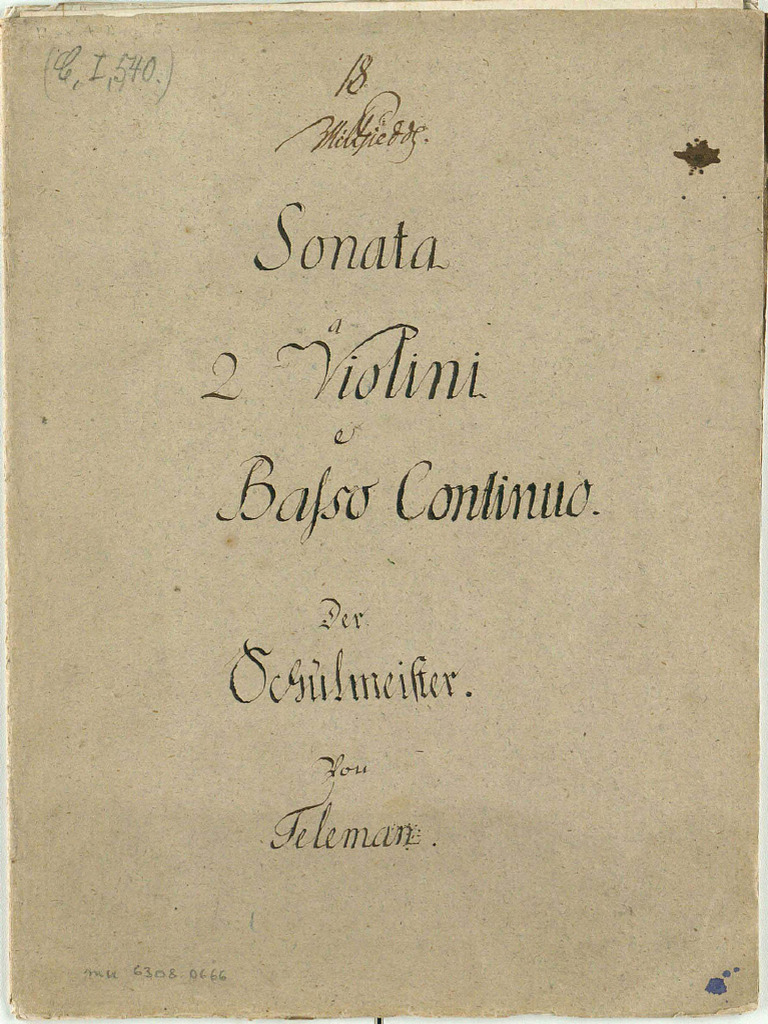 (C, I, 540.)
18
Sonata
a
2 Violini
e
Basso Continuo.
Der
Schulmeister.
Von
Teleman.
mu 6308.0666